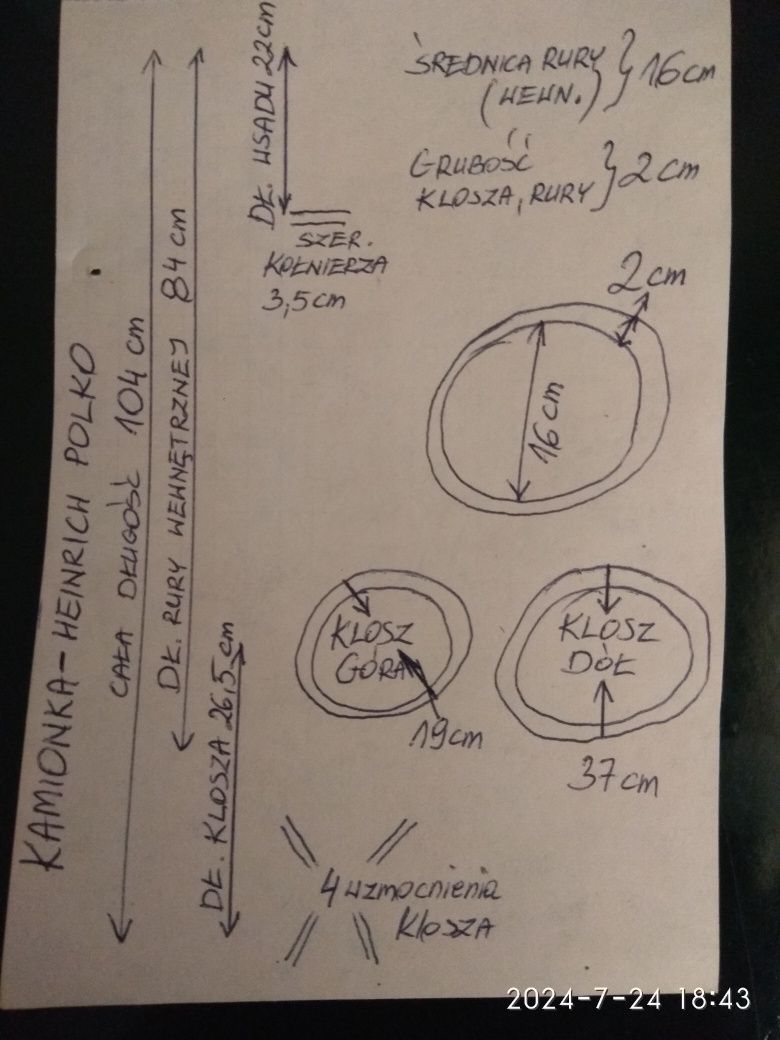 KAMIONKA-HEINRICH POLKO
CAŁA DŁUGOŚĆ 104 cm
DŁ. RURY WEWNĘTRZNEJ 84 cm
DŁ. KLOSZA 26,5 cm
DŁ. WSADU 22cm
SZER.
KOŁNIERZA
3,5cm
ŚREDNICA RURY
(WEWN.) } 16 cm
GRUBOŚĆ
KLOSZA, RURY } 2 cm
2 cm
16 cm
KLOSZ
GÓRA
19cm
KLOSZ
DÓŁ
37 cm
4 wzmocnienia
klosza
2024-7-24 18:43